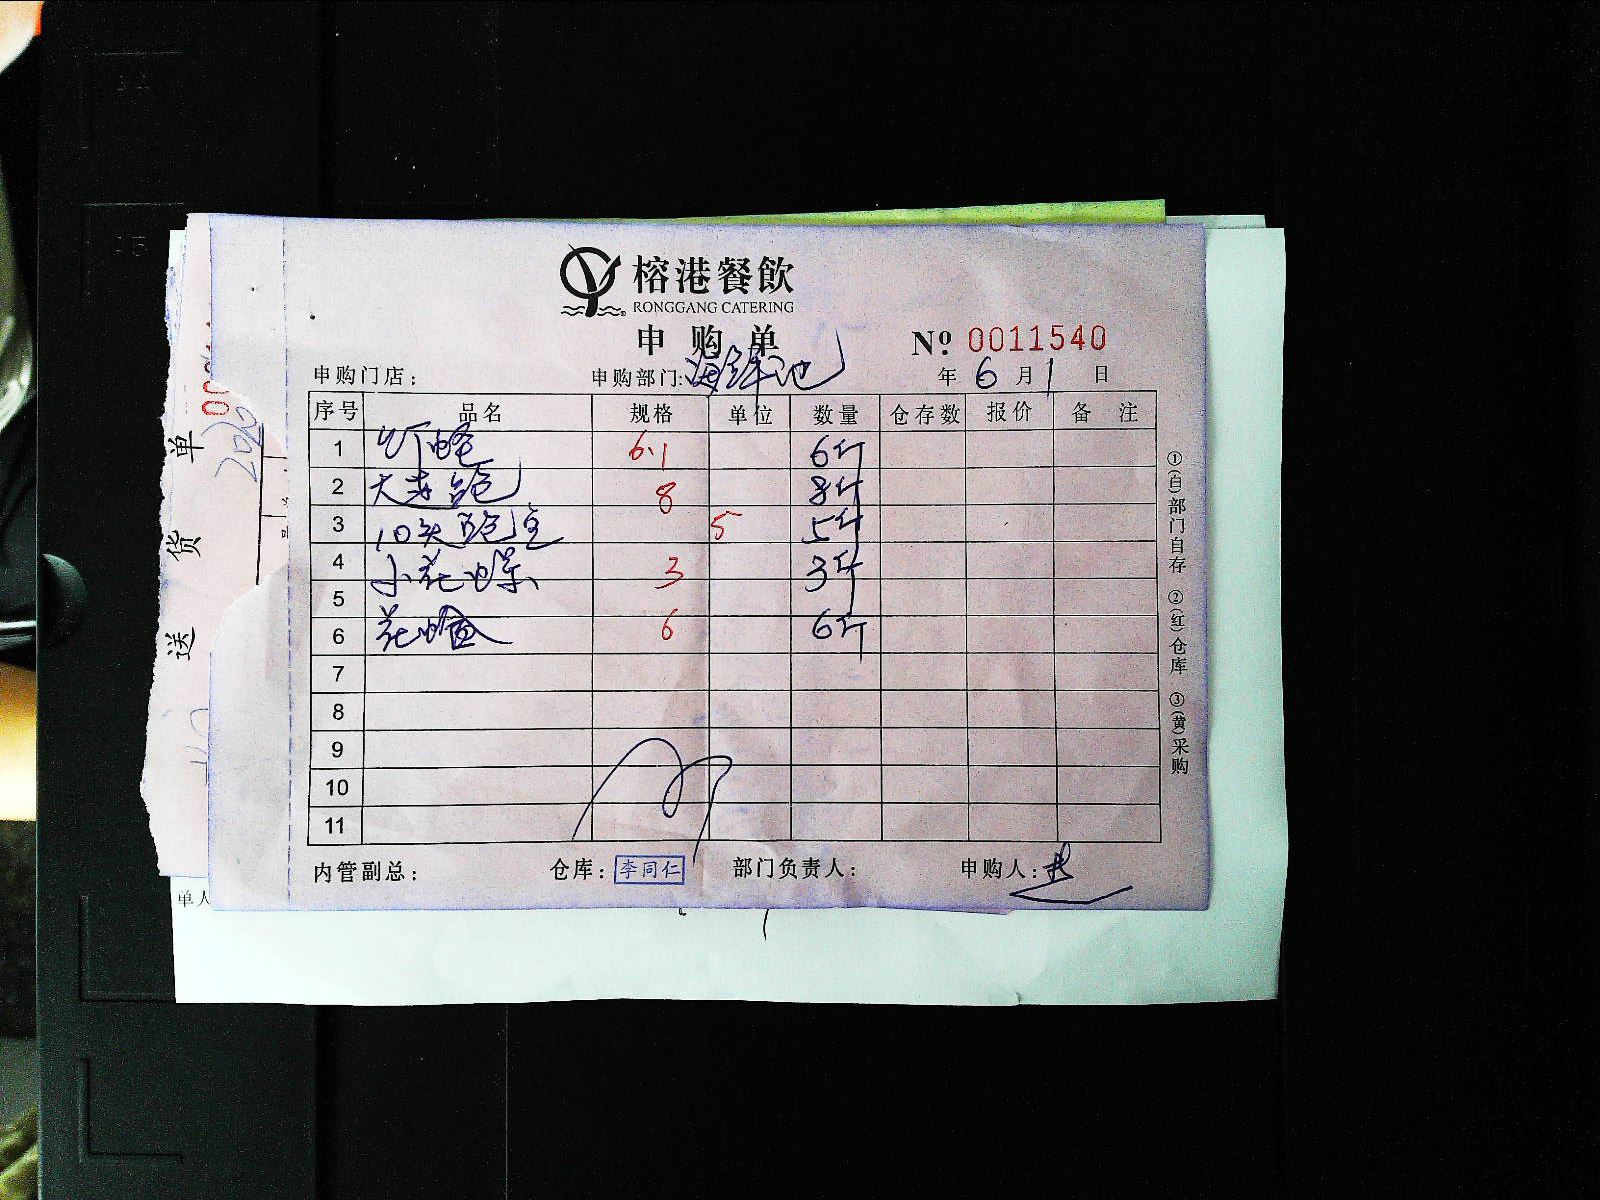 榕港餐飲
RONGGANG CATERING
申购单
Nº 0011540
申购门店： 申购部门:海鲜池 年 6 月 1 日
序号 品名 规格 单位 数量 仓存数 报价 备 注
1 虾蛄 6.1 6斤
2 大连鲍 8 8斤
3 10头鲍 5 5斤
4 小花螺 3 3斤
5
6 花蛤 6 6斤
7
8
9
10
11
内管副总： 仓库：李同仁 部门负责人： 申购人：
①(白)部门自存 ②(红)仓库 ③(黄)采购
送货单
00
2020
单人